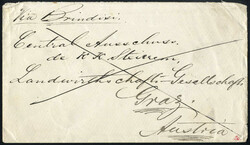 Via Brindisi.
Central Ausschuss.
de K K Steierm.
Landwirthschafts-Gesellschaft.
Graz.
Austria